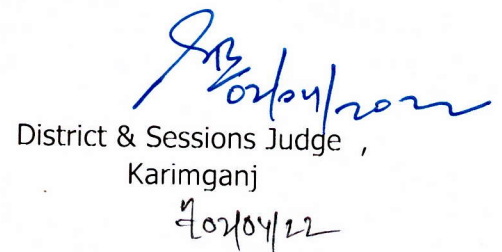 02/04/2022
District & Sessions Judge ,
Karimganj
02/04/22